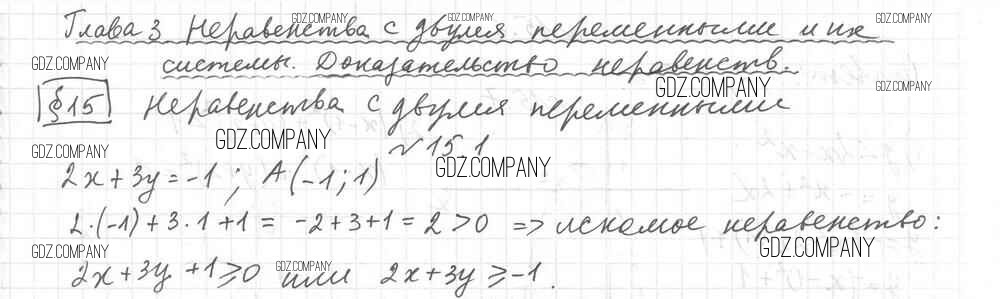 Глава 3 Неравенства с двумя переменными и их
системы. Доказательство неравенств.
§15 Неравенства с двумя переменными
№15.1
2x+3y=-1; A(-1;1)
2·(-1)+3·1+1=-2+3+1=2>0 => искомое неравенство:
2x+3y+1≥0 или 2x+3y≥-1.
GDZ.COMPANY
GDZ.COMPANY
GDZ.COMPANY
GDZ.COMPANY
GDZ.COMPANY
GDZ.COMPANY
GDZ.COMPANY
GDZ.COMPANY
GDZ.COMPANY
GDZ.COMPANY
GDZ.COMPANY
GDZ.COMPANY